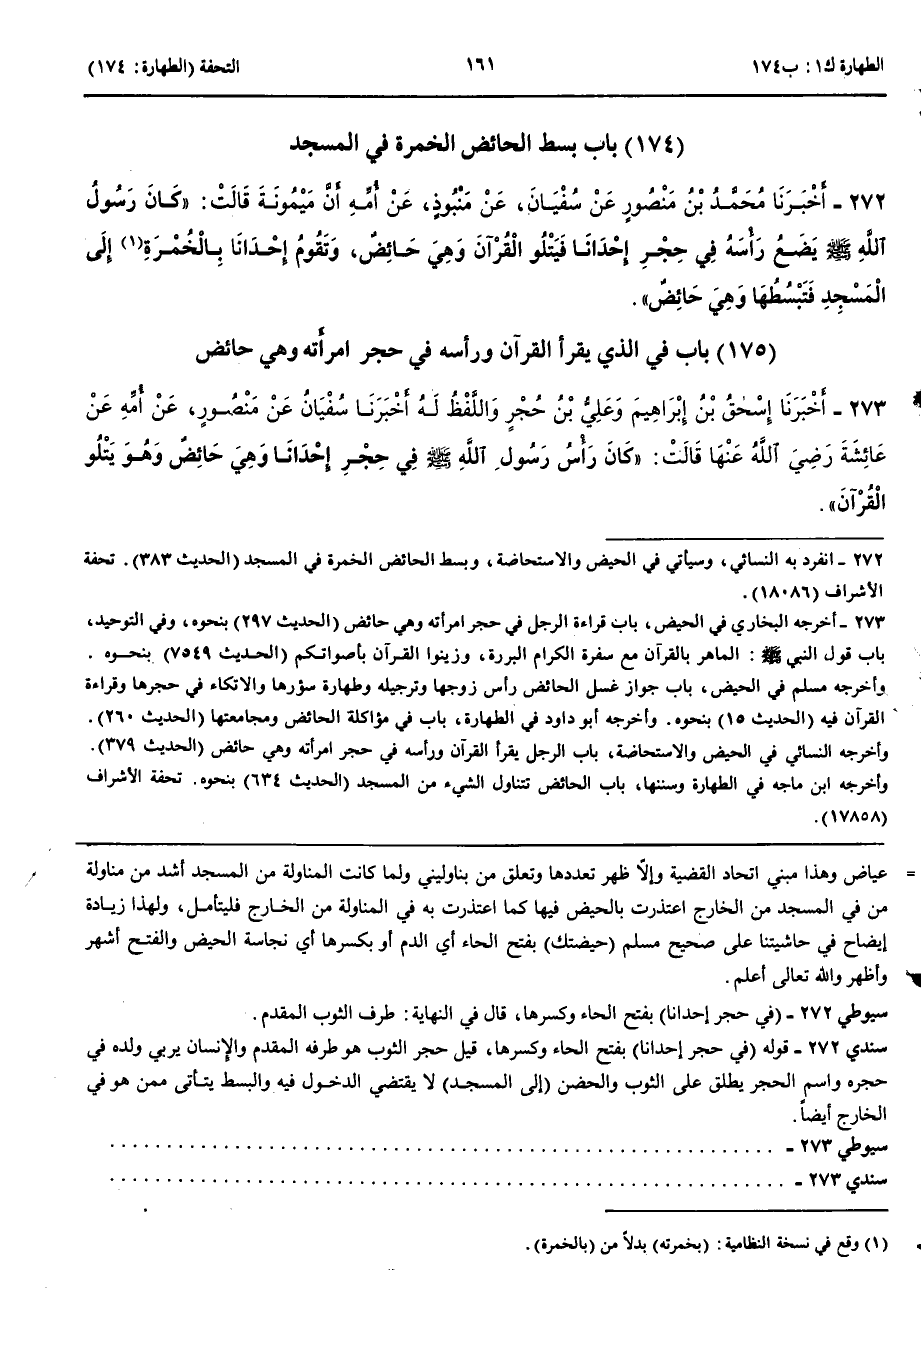 الطهارة ك١: ب١٧٤ ١٦١ التحفة (الطهارة: ١٧٤)
(١٧٤) باب بسط الحائض الخمرة في المسجد
٢٧٢ ـ أَخْبَرَنَا مُحَمَّدُ بْنُ مَنْصُورٍ عَنْ سُفْيَانَ، عَنْ مَنْبُوذٍ، عَنْ أُمِّهِ أَنَّ مَيْمُونَةَ قَالَتْ: «كَانَ رَسُولُ
اللَّهِ ﷺ يَضَعُ رَأْسَهُ فِي حِجْرِ إِحْدَانَا فَيَتْلُو الْقُرْآنَ وَهِيَ حَائِضٌ، وَتَقُومُ إِحْدَانَا بِالْخُمْرَةِ(١) إِلَى
الْمَسْجِدِ فَتَبْسُطُهَا وَهِيَ حَائِضٌ».
(١٧٥) باب في الذي يقرأ القرآن ورأسه في حجر امرأته وهي حائض
٢٧٣ ـ أَخْبَرَنَا إِسْحٰقُ بْنُ إِبْرَاهِيمَ وَعَلِيُّ بْنُ حُجْرٍ وَاللَّفْظُ لَهُ أَخْبَرَنَا سُفْيَانُ عَنْ مَنْصُورٍ، عَنْ أُمِّهِ عَنْ
عَائِشَةَ رَضِيَ اللَّهُ عَنْهَا قَالَتْ: «كَانَ رَأْسُ رَسُولِ اللَّهِ ﷺ فِي حِجْرِ إِحْدَانَا وَهِيَ حَائِضٌ وَهُوَ يَتْلُو
الْقُرْآنَ».
٢٧٢ ـ انفرد به النسائي، وسيأتي في الحيض والاستحاضة، وبسط الحائض الخمرة في المسجد (الحديث ٣٨٣). تحفة
الأشراف (١٨٠٨٦).
٢٧٣ ـ أخرجه البخاري في الحيض، باب قراءة الرجل في حجر امرأته وهي حائض (الحديث ٢٩٧) بنحوه، وفي التوحيد،
باب قول النبي ﷺ: الماهر بالقرآن مع سفرة الكرام البررة، وزينوا القرآن بأصواتكم (الحديث ٧٥٤٩) بنحوه.
وأخرجه مسلم في الحيض، باب جواز غسل الحائض رأس زوجها وترجيله وطهارة سؤرها والاتكاء في حجرها وقراءة
القرآن فيه (الحديث ١٥) بنحوه. وأخرجه أبو داود في الطهارة، باب في مؤاكلة الحائض ومجامعتها (الحديث ٢٦٠).
وأخرجه النسائي في الحيض والاستحاضة، باب الرجل يقرأ القرآن ورأسه في حجر امرأته وهي حائض (الحديث ٣٧٩).
وأخرجه ابن ماجه في الطهارة وسننها، باب الحائض تتناول الشيء من المسجد (الحديث ٦٣٤) بنحوه. تحفة الأشراف
(١٧٨٥٨).
= عياض وهذا مبني اتحاد القضية وإلّا ظهر تعددها وتعلق من بناوليني ولما كانت المناولة من المسجد أشد من مناولة
من في المسجد من الخارج اعتذرت بالحيض فيها كما اعتذرت به في المناولة من الخارج فليتأمل، ولهذا زيادة
إيضاح في حاشيتنا على صحيح مسلم (حيضتك) بفتح الحاء أي الدم أو بكسرها أي نجاسة الحيض والفتح أشهر
وأظهر والله تعالى أعلم.
سيوطي ٢٧٢ ـ (في حجر إحدانا) بفتح الحاء وكسرها، قال في النهاية: طرف الثوب المقدم.
سندي ٢٧٢ ـ قوله (في حجر إحدانا) بفتح الحاء وكسرها، قيل حجر الثوب هو طرفه المقدم والإنسان يربي ولده في
حجره واسم الحجر يطلق على الثوب والحضن (إلى المسجد) لا يقتضي الدخول فيه والبسط يتأتى ممن هو في
الخارج أيضاً.
سيوطي ٢٧٣ ـ . . . . . . . . . . . . . . . . . . . . . . . . . . . . . . . . . . . . . . . .
سندي ٢٧٣ ـ . . . . . . . . . . . . . . . . . . . . . . . . . . . . . . . . . . . . . . . .
(١) وقع في نسخة النظامية: (بخمرته) بدلاً من (بالخمرة).